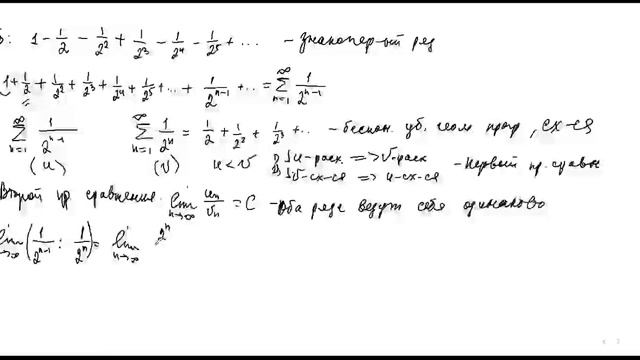 1 - 1/2 - 1/2² + 1/2³ - 1/2⁴ - 1/2⁵ + ... - знакопер-ый ряд
1 + 1/2 + 1/2² + 1/2³ + 1/2⁴ + 1/2⁵ + ... + 1/2ⁿ⁻¹ + ... = ∑ₙ₌₁^∞ 1/2ⁿ⁻¹
∑ₙ₌₁^∞ 1/2ⁿ⁻¹ ∑ₙ₌₁^∞ 1/2ⁿ = 1/2 + 1/2² + 1/2³ + ... - бескон. уб. геом прогр, сх-ся
(u) (v) u < v 1) u-расх. => v-расх
2) v-сх-ся => u-сх-ся - первый пр. сравн
Второй пр сравнения lim n→∞ uₙ/vₙ = C - оба ряда ведут себя одинаково
lim n→∞ (1/2ⁿ⁻¹ : 1/2ⁿ) = lim n→∞ 2ⁿ